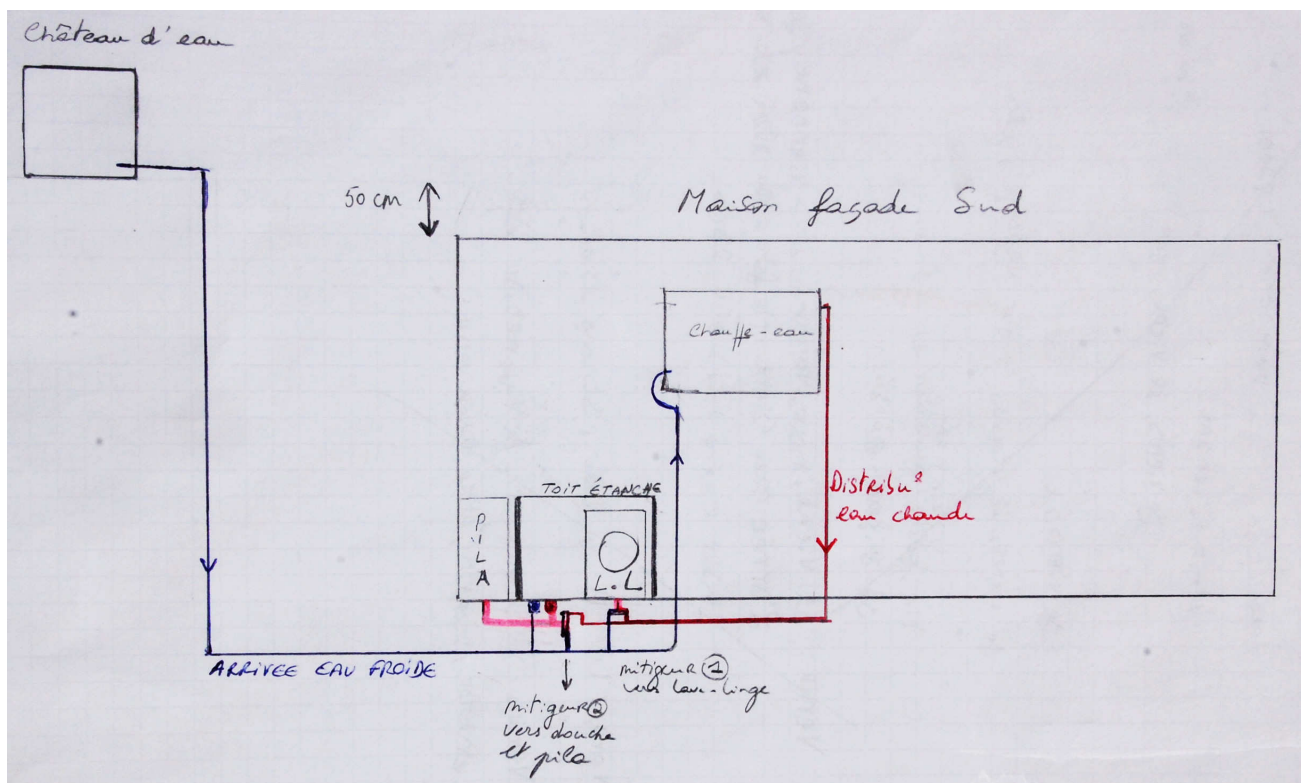 Château d'eau
50 cm
Maison façade Sud
Chauffe-eau
TOIT ÉTANCHE
PILA
L.L.
Distribu°
eau chaude
ARRIVEE EAU FROIDE
mitigeur ①
vers lave-linge
mitigeur ②
vers douche
et pila